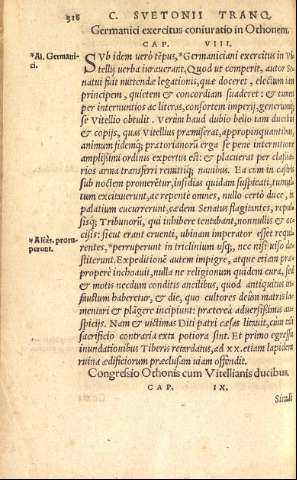 318 C. SVETONII TRANQ.
Germanici exercitus coniuratio in Othonem.
CAP. VIII.
*Al. Germanici.
SVb idem verò tẽpus, *Germaniciani exercitus in Vitellij
uerba iurauerant. Quod ut comperit, autor Senatui
fuit mittendæ legationis, quæ doceret, electum iam
principem, quietem & concordiam suaderet: & tamen
per internuntios ac literas, consortem imperij, generumq́;
se Vitellio obtulit. Verùm haud dubio bello iam ducibus
& copijs, quas Vitellius præmiserat, appropinquantibus,
animum fidemq́; prætorianorũ erga se penè internitione
amplissimi ordinis expertus est: & placuerat per classiarios
arma transferri remittiq; nauibus. Ea cum in castris
sub noctem promerẽtur, insidias quidam suspicati, tumultum
excitauerunt, ac repentè omnes, nullo certo duce, in
palatium cucurrerunt, cædem Senatus flagitantes, repulsisq́;
Tribunorũ, qui inhibere tentabant, nonnullis & occisis:
sicut erant cruenti, ubinam imperator esset requirentes,
*perruperunt in triclinium usq;, nec nisi uiso destiterunt.
*Aliàs, proruperunt.
Expeditionẽ autem impigrè, atque etiam præproperè
inchoauit, nulla ne religionum quidem cura, sed
& motis necdum conditis ancilibus, quod antiquitus infaustum
haberetur, & die, quo cultores deûm matris lamentari
& plãgere incipiunt: præterea aduersissimis auspicijs.
Nam & uictima Diti patri cæsa litauit, cùm tali
sacrificio contraria exta potiora sint. Et primo egressu
inundationibus Tiberis retardatus, ad XX. etiam lapidem
ruina ædificiorum præclusam uiam offendit.
Congressio Othonis cum Vitellianis ducibus.
CAP. IX.